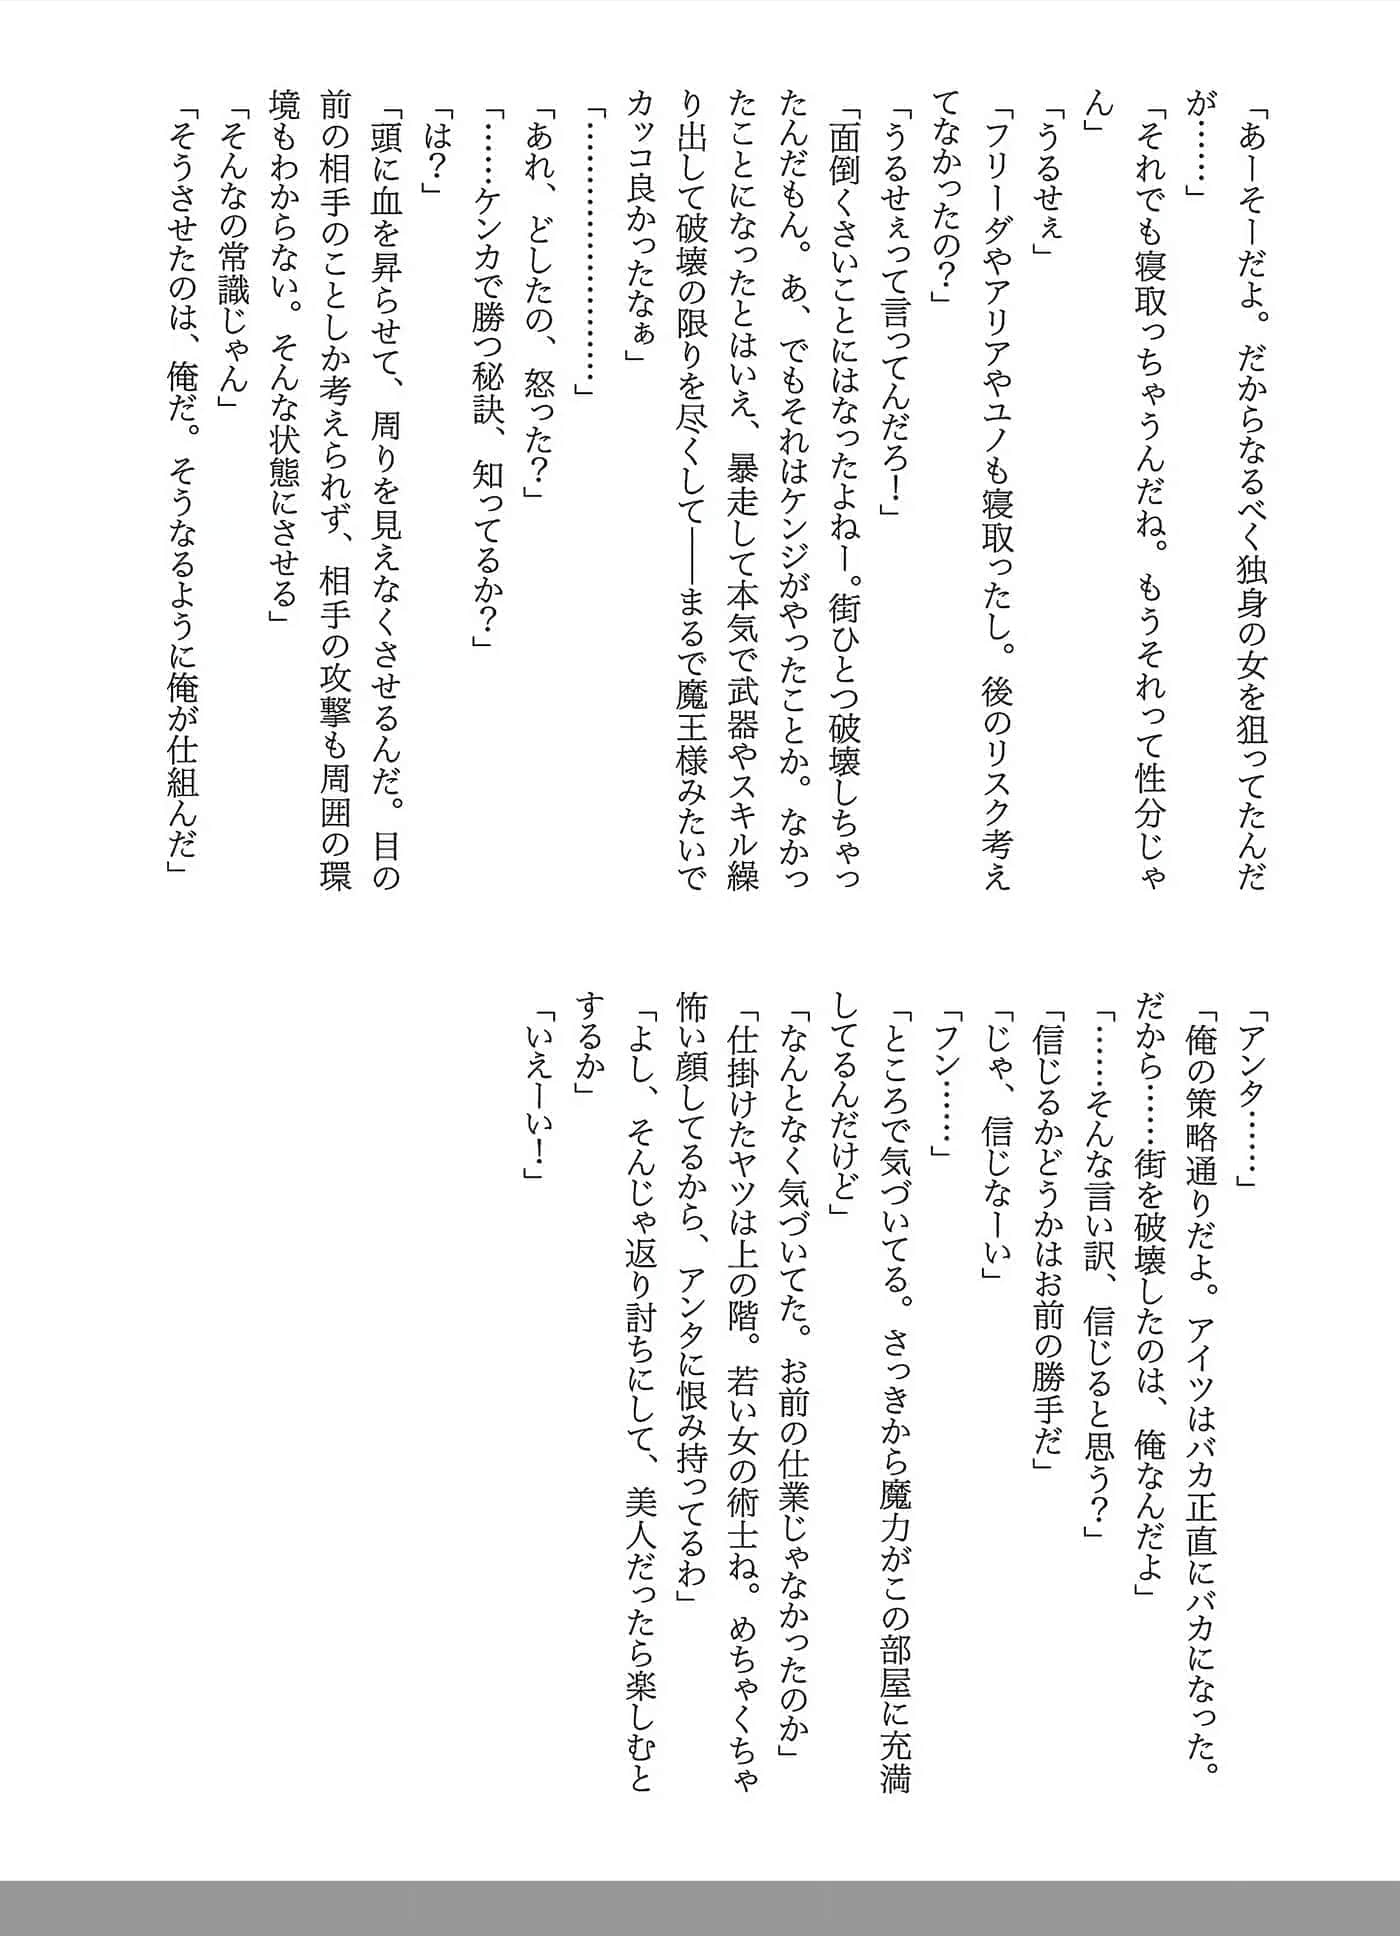 「あーそーだよ。だからなるべく独身の女を狙ってたんだ
が……」
「それでも寝取っちゃうんだね。もうそれって性分じゃ
ん」
「うるせぇ」
「フリーダやアリアやユノも寝取ったし。後のリスク考え
てなかったの？」
「うるせぇって言ってんだろ！」
「面倒くさいことにはなったよねー。街ひとつ破壊しちゃっ
たんだもん。あ、でもそれはケンジがやったことか。なかっ
たことになったとはいえ、暴走して本気で武器やスキル繰
り出して破壊の限りを尽くして――まるで魔王様みたいで
カッコ良かったなぁ」
「……………………」
「あれ、どしたの、怒った？」
「……ケンカで勝つ秘訣、知ってるか？」
「は？」
「頭に血を昇らせて、周りを見えなくさせるんだ。目の
前の相手のことしか考えられず、相手の攻撃も周囲の環
境もわからない。そんな状態にさせる」
「そんなの常識じゃん」
「そうさせたのは、俺だ。そうなるように俺が仕組んだ」
「アンタ……」
「俺の策略通りだよ。アイツはバカ正直にバカになった。
だから……街を破壊したのは、俺なんだよ」
「……そんな言い訳、信じると思う？」
「信じるかどうかはお前の勝手だ」
「じゃ、信じなーい」
「フン……」
「ところで気づいてる。さっきから魔力がこの部屋に充満
してるんだけど」
「なんとなく気づいてた。お前の仕業じゃなかったのか」
「仕掛けたヤツは上の階。若い女の術士ね。めちゃくちゃ
怖い顔してるから、アンタに恨み持ってるわ」
「よし、そんじゃ返り討ちにして、美人だったら楽しむと
するか」
「いえーい！」